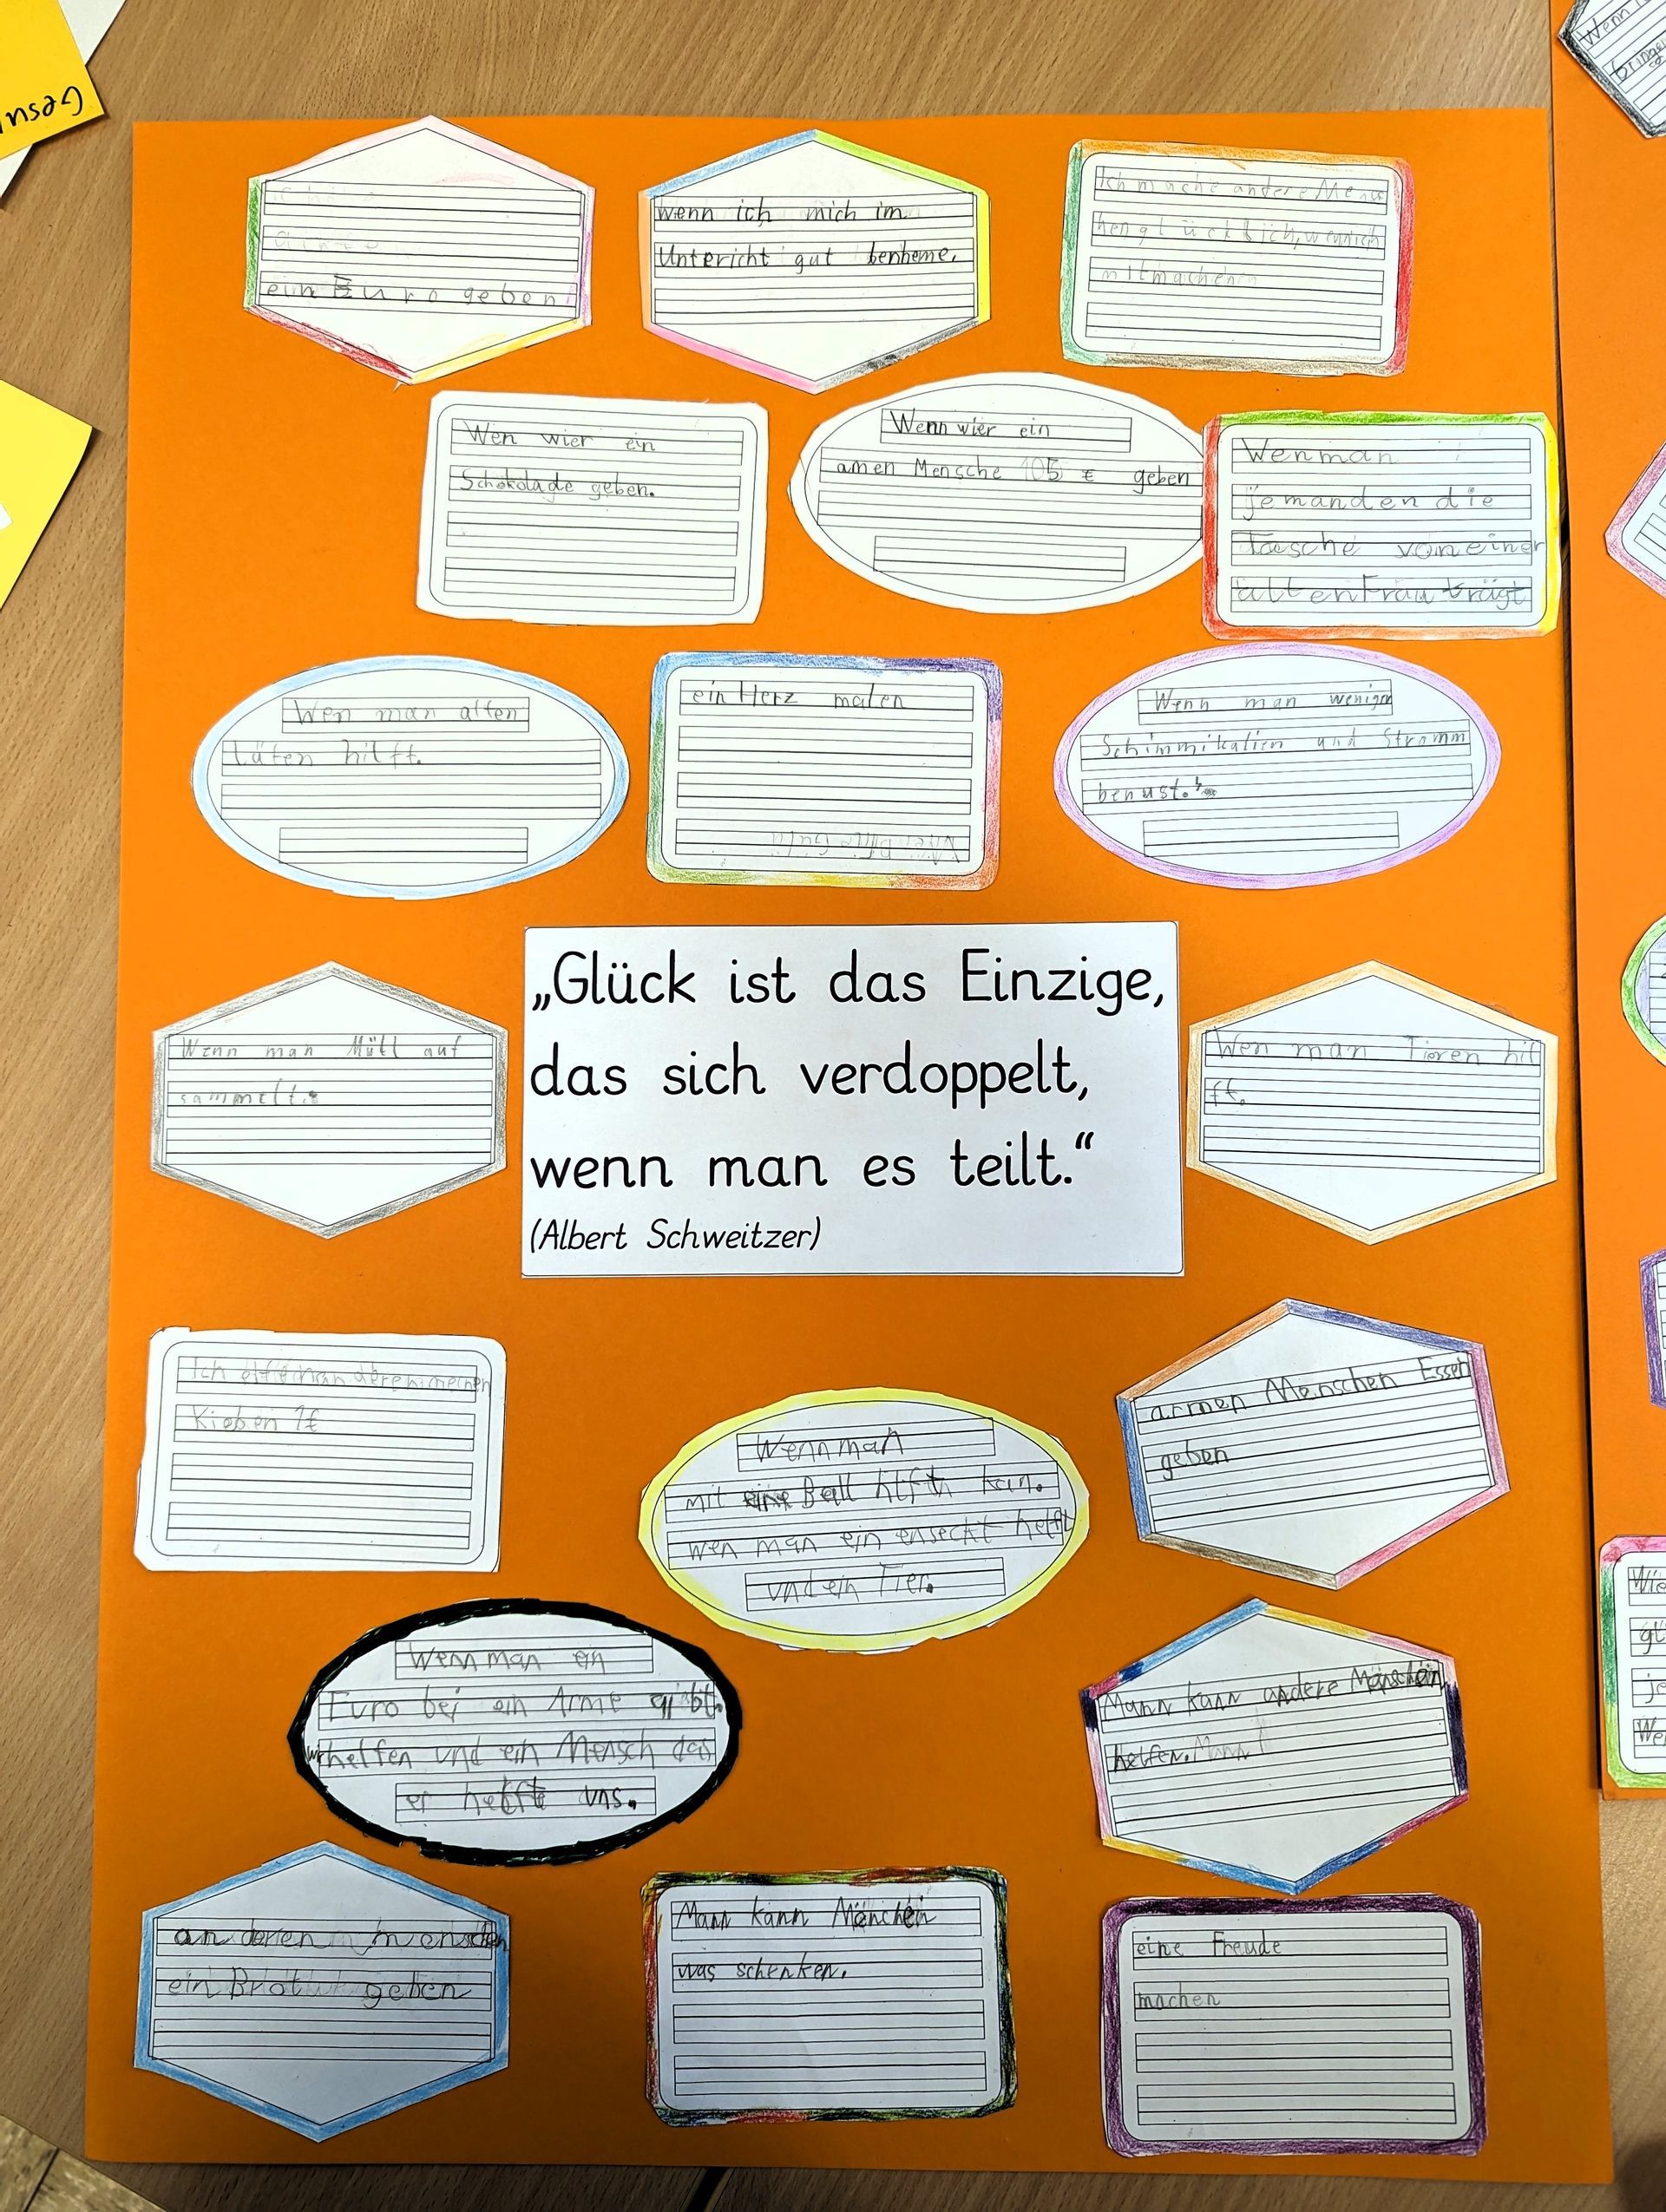 Gesu
ein Euro geben
wenn ich mich im
Unterricht gut benheme.
Ich mache andere Mens
hen glücklich, wennich
mitmachen
Wen wier ein
Schokolade geben.
Wenn wier ein
amen Mensche 105 € geben
Wenman
jemanden die
tasche voneiner
alten Frau trägt
Wen man alten
läten hilft.
ein Herz malen
Wenn man weniger
Schimmikalien und Stromm
benust.
Wenn man Müll auf
sammelt.
„Glück ist das Einzige,
das sich verdoppelt,
wenn man es teilt.“
(Albert Schweitzer)
Wen man Tieren hil
ft.
Ich
Kieben 1€
armen Menschen Essen
geben
Wennman
mit eine Ball hilfth kan.
wen man ein enseckt helft
und ein Tier.
Wennman ein
Euro bei ein Arme gibt.
wirhelfen und ein Mensch das
er helfte uns.
Mann kann andere Mänschein
helfen. Mann
anderen menschen
ein Brot geben
Mann kann Mänchein
was schenken.
eine Freude
machen
Wenn
bringe
Wie
gl
je
We